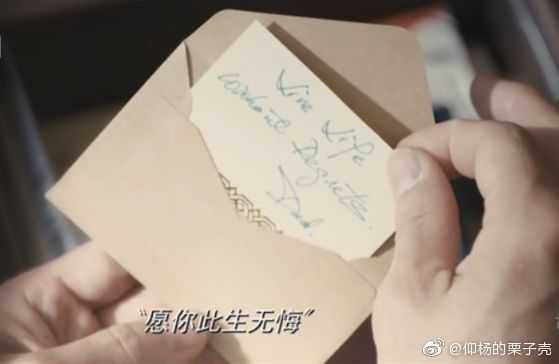 Live Life
without Regrets.
Dad.
“愿你此生无悔”
@仰杨的栗子壳